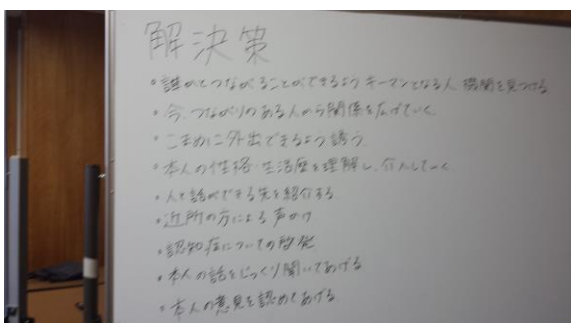 解決策
・誰かとつながることができるよう キーマンとなる人、機関を見つける
・今、つながりのある人から関係を広げていく
・こまめに外出できるよう誘う
・本人の性格・生活歴を理解し、介入していく
・人と話ができる先を紹介する
・近所の方による声かけ
・認知症についての啓発
・本人の話をじっくり聞いてあげる
・本人の意見を認めてあげる